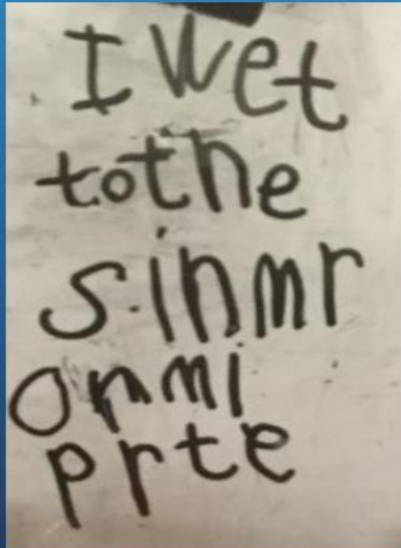 I wet
to the
sinmr
on mi
prte